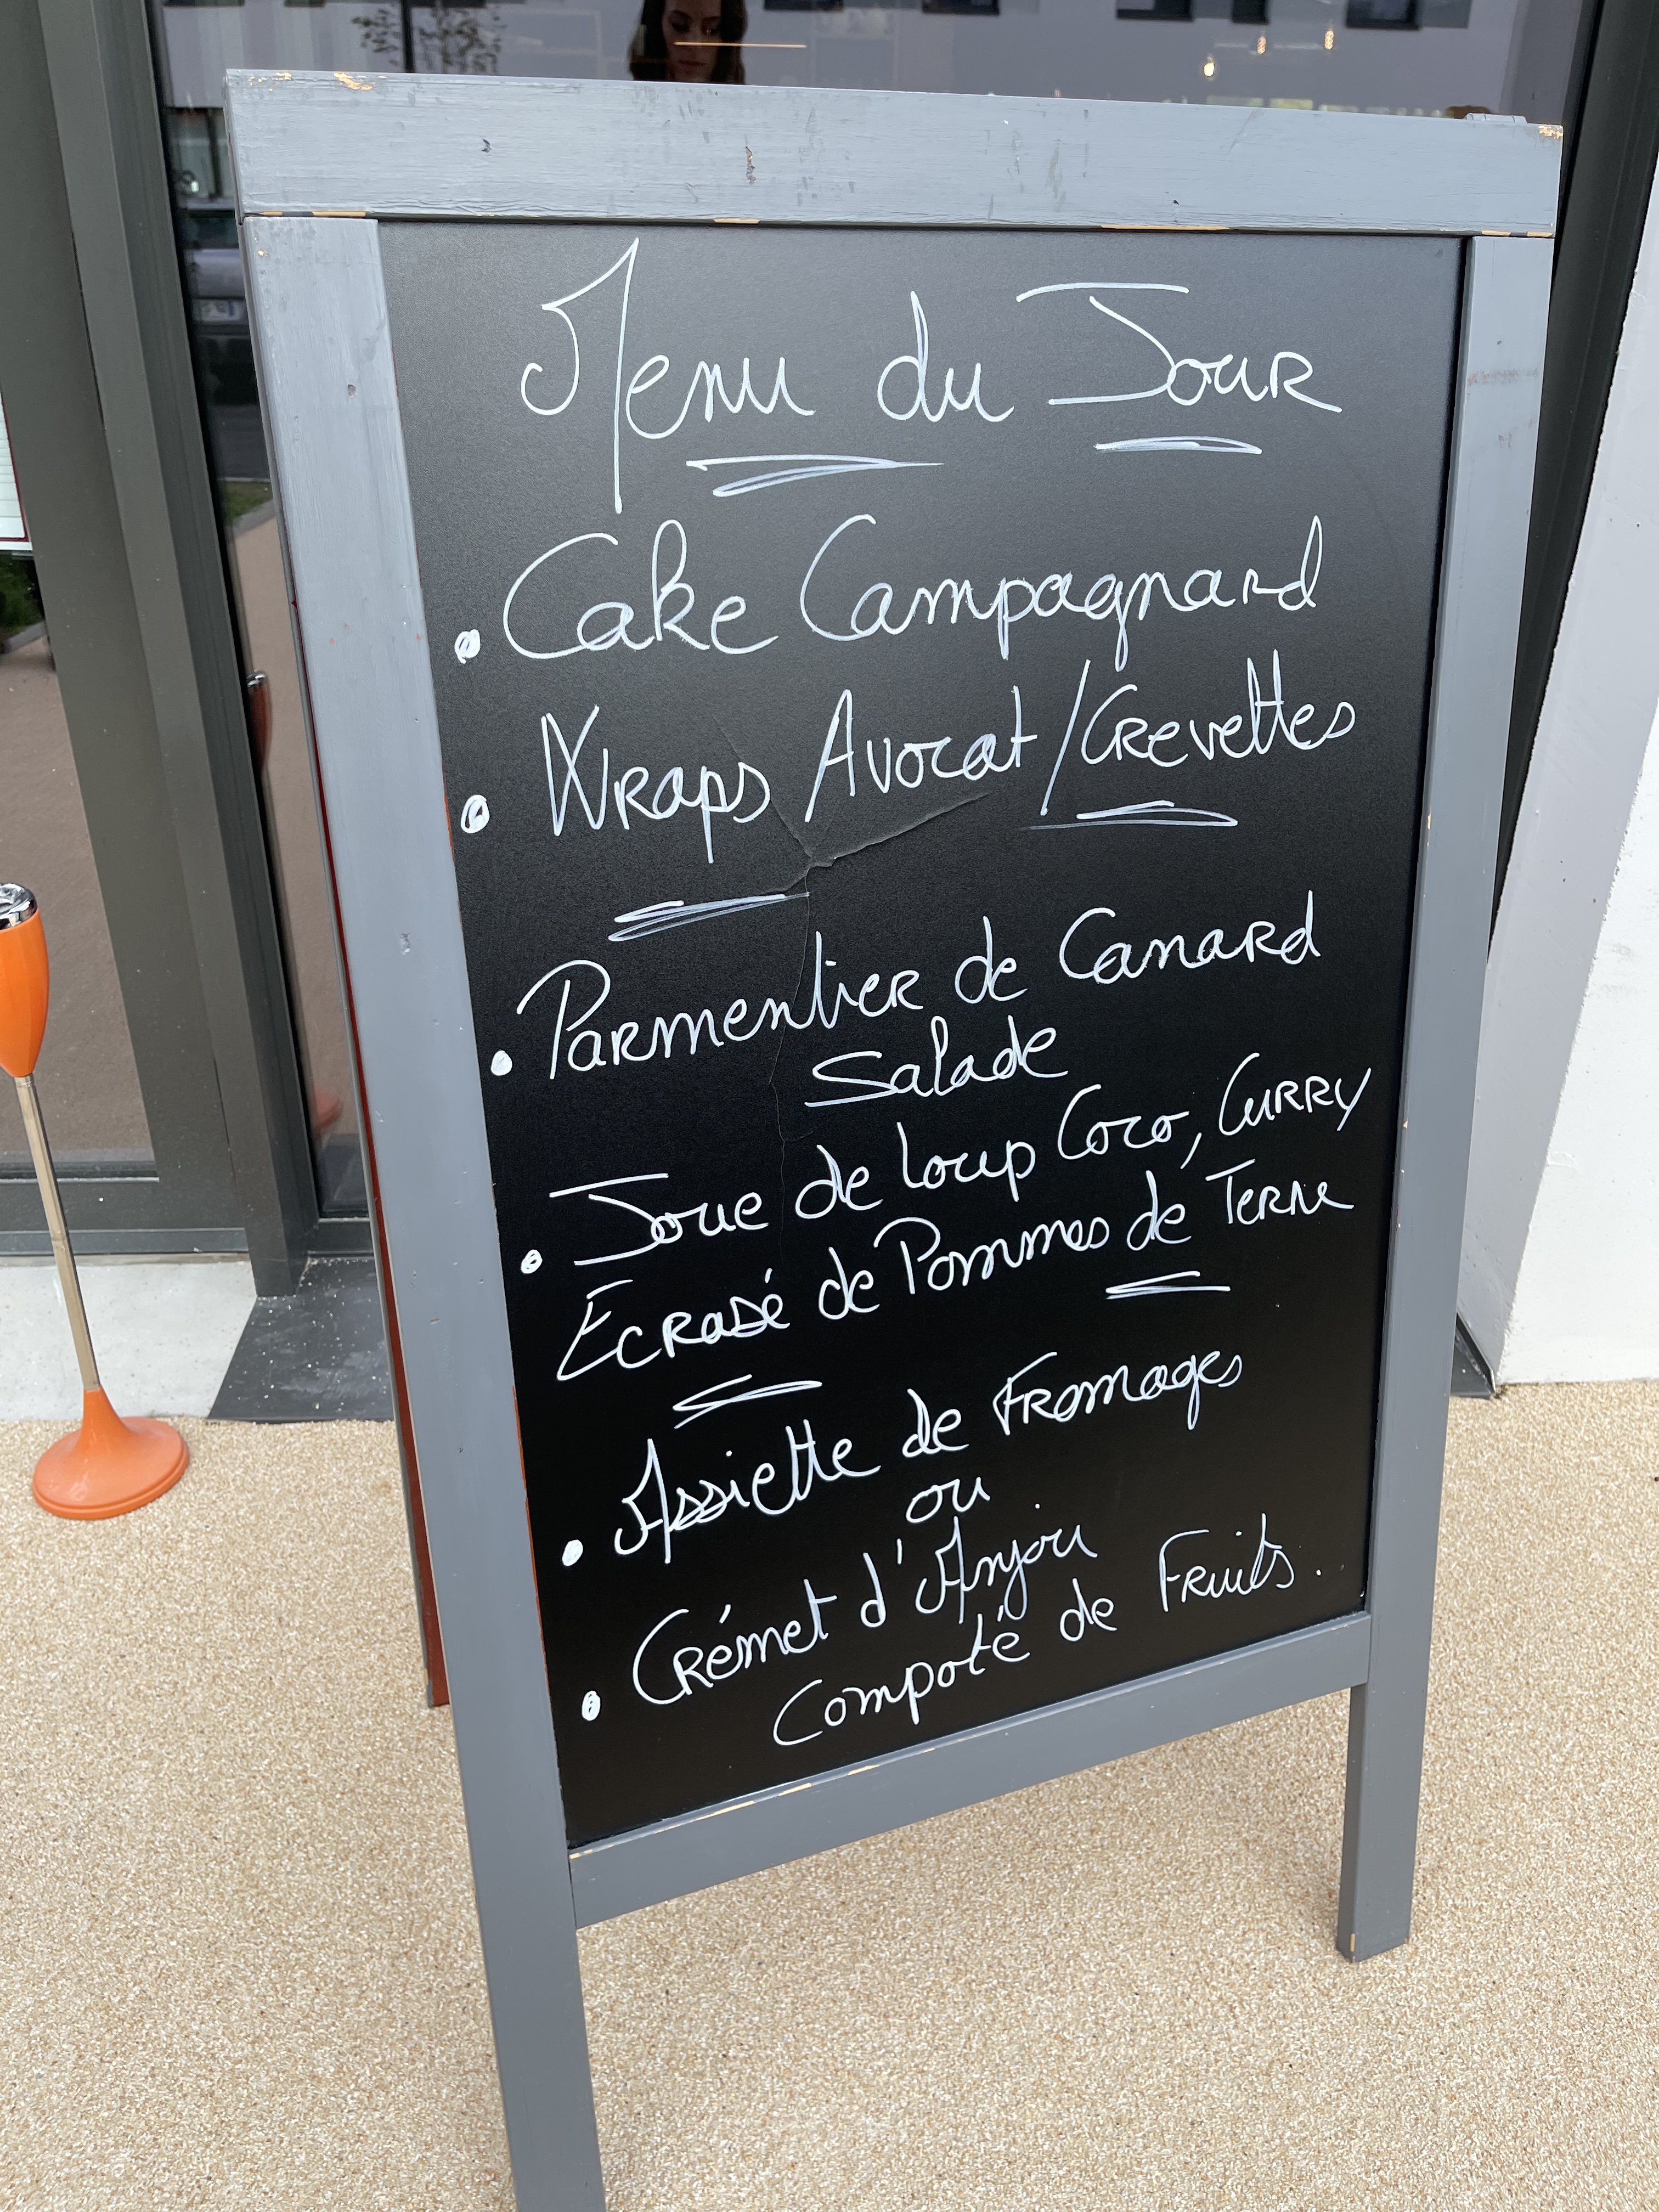 Menu du Jour
• Cake Campagnard
• Wraps Avocat / Crevettes
• Parmentier de Canard
Salade
• Joue de loup Coco, Curry
Ecrasé de Pommes de Terre
• Assiette de Fromages
ou
• Crémet d'Anjou
Compoté de Fruits.